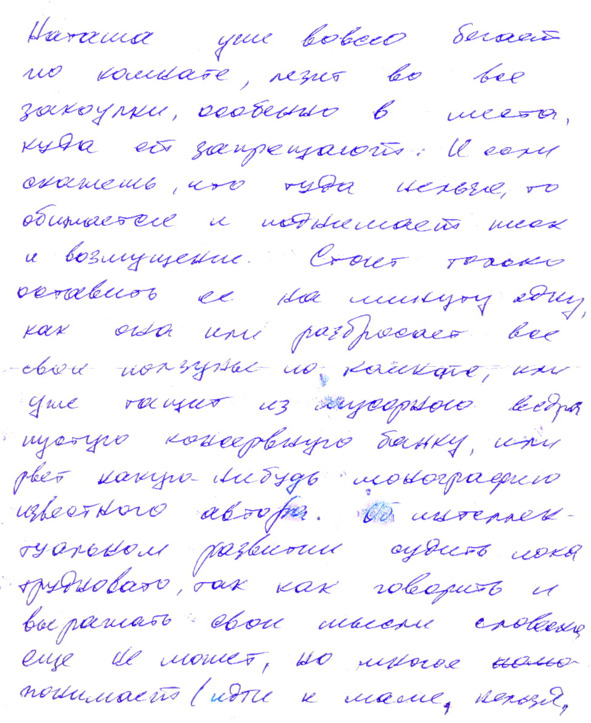 Наташа уже вовсю бегает
по комнате, лезет во все
закоулки, особенно в места,
куда ей запрещают. И если
скажешь, что туда нельзя, то
обижается и поднимает писк
и возмущение. Стоит только
оставить ее на минуту одну,
как она или разбросает все
свои ползунки по комнате, или
уже тащит из мусорного ведра
пустую консервную банку, или
рвет какую-нибудь монографию
известного автора. Об интеллек-
туальном развитии судить пока
трудновато, так как говорить и
выражать свои мысли словесно
еще не может, но многое
понимает (идти к маме, нельзя,